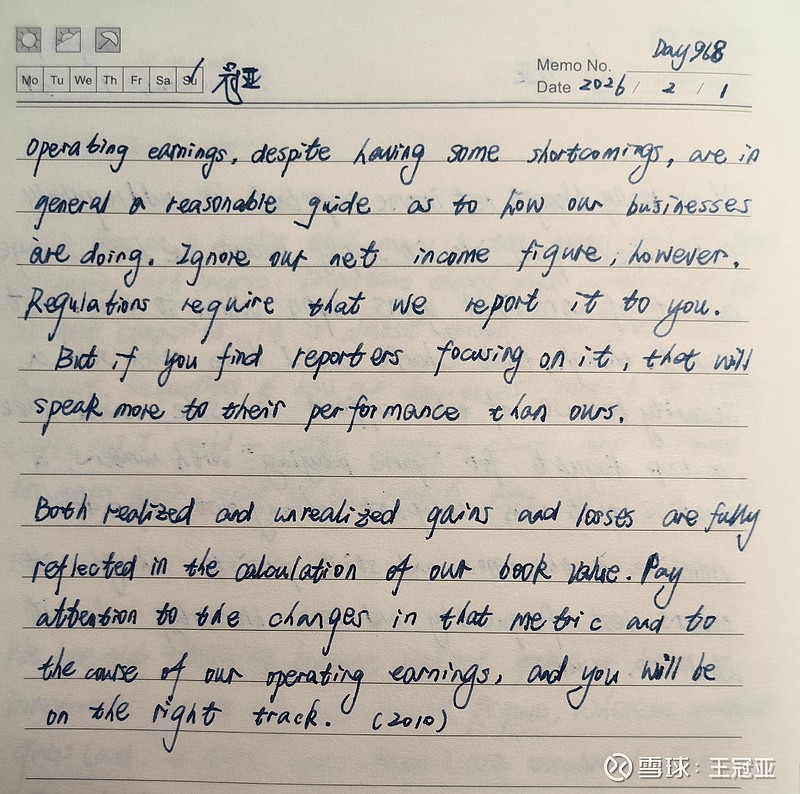 Day 968
Memo No.
Mo Tu We Th Fr Sa Su 冠亚
Date 2026 / 2 / 1
Operating earnings, despite having some shortcomings, are in
general a reasonable guide as to how our businesses
are doing. Ignore our net income figure, however.
Regulations require that we report it to you.
But if you find reporters focusing on it, that will
speak more to their performance than ours.
Both realized and unrealized gains and losses are fully
reflected in the calculation of our book value. Pay
attention to the changes in that metric and to
the course of our operating earnings, and you will be
on the right track. (2010)
雪球：王冠亚